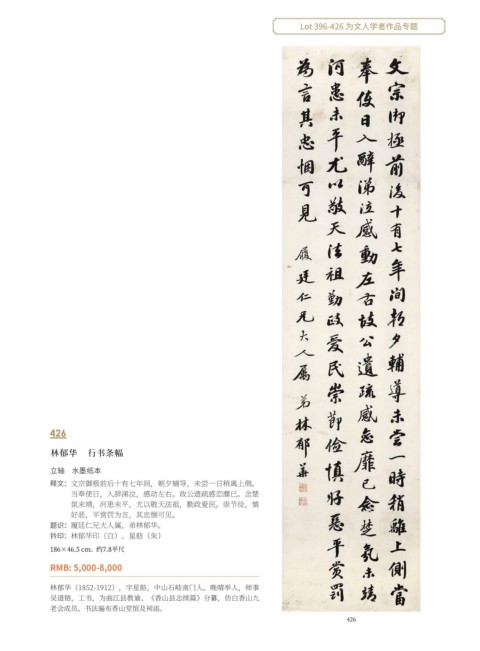 Lot 396-426 为文人学者作品专题
文宗御极前后十有七年间朝夕辅导未尝一时稍离上侧当
奉使日入辞涕泣感动左右故公遗疏感恋靡已念楚氛未靖
河患未平尤以敬天法祖勤政爱民崇节俭慎好恶平赏罚
为言其忠悃可见 履廷仁兄大人属 弟林郁华
426
426
林郁华 行书条幅
立轴 水墨纸本
释文：文宗御极前后十有七年间，朝夕辅导，未尝一日稍离上侧。
当奉使日，入辞涕泣，感动左右。故公遗疏感恋靡已。念楚
氛未靖，河患未平，尤以敬天法祖，勤政爱民。崇节俭，慎
好恶，平赏罚为言，其忠悃可见。
题识：履廷仁兄大人属，弟林郁华。
钤印：林郁华印（白）、星舫（朱）
186×46.5 cm. 约7.8平尺
RMB: 5,000-8,000
林郁华（1852-1912），字星舫，中山石岐南门人。晚晴举人，师事
吴道镕，工书，为曲江县教谕，《香山县志续篇》分纂，仿白香山九
老会成员。书法遍布香山堂馆及祠庙。